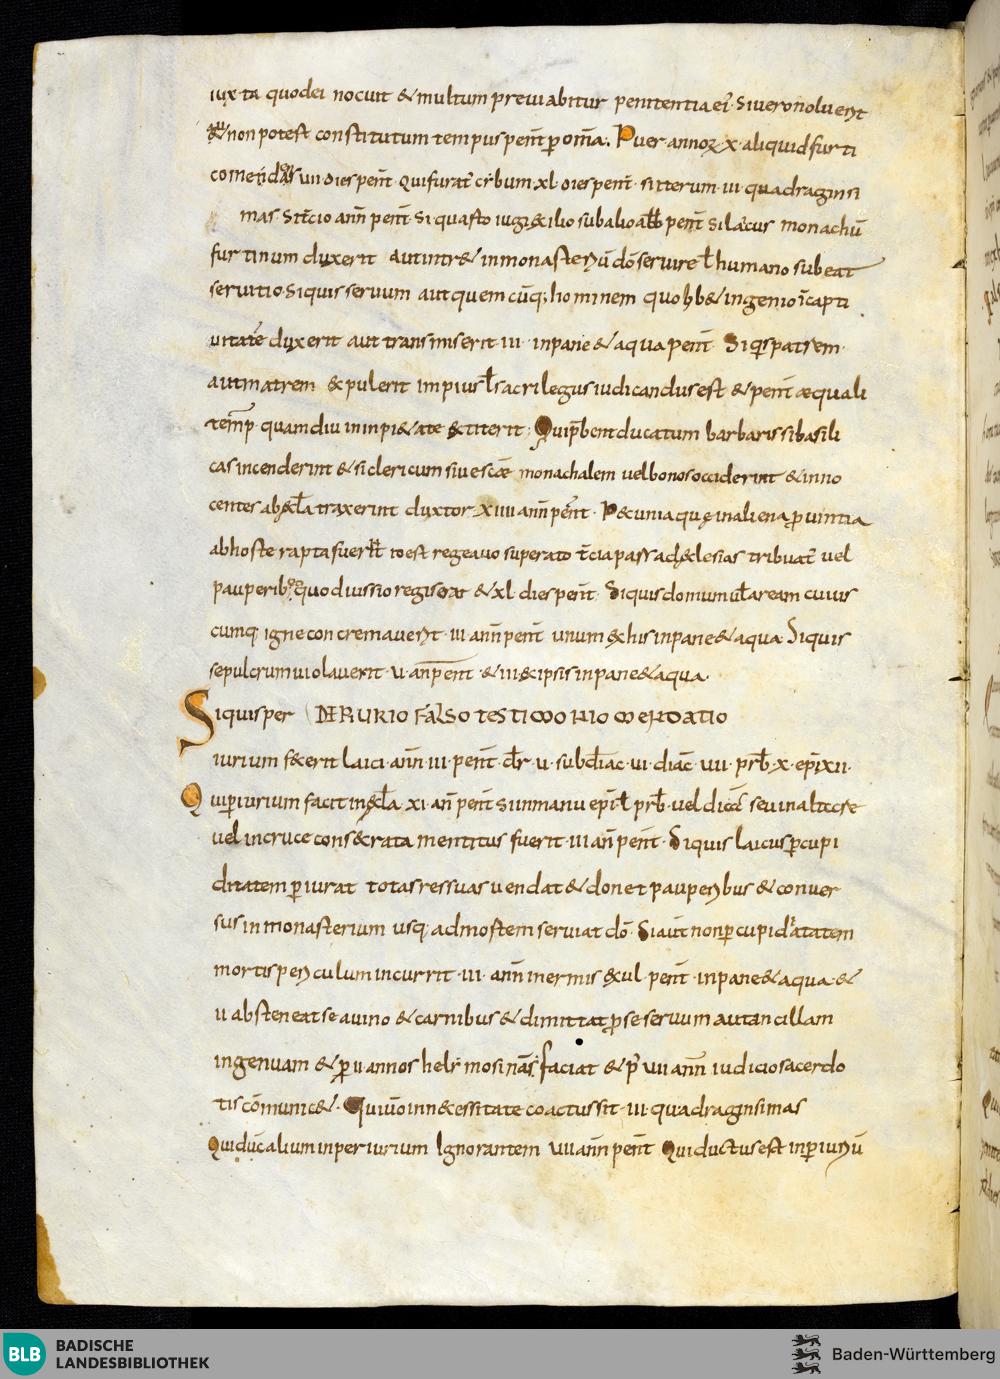 iuxta quod ei nocuit & multum p̄reuiabitur penitentia ei; Si uero noluerit
& non potest constitutum tempus penit̄ ꝑ om̄a. Puer annoꝝ x aliquid furti
comedens un dies penit̄ Qui furat̄ cybum xl dies penit̄. si iterum iii quadraginsi
mas. Si t̄cio ann̄ penit̄ Si quasto iugi exilio sub alio abb penit̄ Si laicus monachū
furtinum duxerit aut intr& in monasteriū dō seruire ł humano subeat
seruitio. Si quis seruum aut quem cūq; hominem quolib& ingenio ī capti
uitatē duxerit aut transmiserit iii in pane & aqua penit̄ Si qis patrem
aut matrem expulerit impius ł sacrilegus iudicandus est & penit̄ æquali
temp̄ quamdiu in inpi&ate extiterit; Qui p̄bent ducatum barbaris si basili
cas incenderint & si clericum siue scæ monachalem uel bonos occiderint & inno
centes ab eccła traxerint ductor xiiii ann̄ penit̄. Pecunia quę in aliena ꝑuintia
ab hoste rapta fuerit id est rege a uo superato t̄cia pars ad eclesias tribuat̄ uel
pauperib; quod iussio regis erat & xl dies penit̄ Si quis domum uł aream cuius
cumq; igne concremauerit iii ann̄ penit̄ unum ex his in pane & aqua. Si quis
sepulcrum uiolauerit u ann̄ penit̄ & iii ex ipsis in pane & aqua.
Si quis per DE PERIURIO FALSO TESTIMONIO MENDATIO
iurium fecerit laici ann̄ iii penit̄ cłr u subdiac ui diac uii prb̄ x ep̄i xii.
Qui ꝑiurium facit in eccła xi ann̄ penit̄ Si in manu ep̄i ł prb̄ uel diac̄ seu in altare
uel in cruce consecrata mentitus fuerit iii ann̄ penit̄. Si quis laicus ꝑ cupi
ditatem ꝑiurat totas res suas uendat & donet pauperibus & conuer
sus in monasterium usq; ad mortem seruiat dō. Si aut̄ non ꝑ cupiditatem
mortis periculum incurrit iii ann̄ inermis exul penit̄ in pane & aqua &
ii absteneat se a uino & carnibus & dimittat ꝑ se seruum aut ancillam
ingenuam & ꝑ ii annos helimosinas faciat & p̄ uii ann̄ iudicio sacerdo
tis cōmunic&. Qui uō in necessitate coactus sit iii quadraginsimas
Qui duc̄ alium in periurium Ignorantem uii ann̄ penit̄ Qui ductus est in ꝑiuriū
BLB BADISCHE
LANDESBIBLIOTHEK
Baden-Württemberg